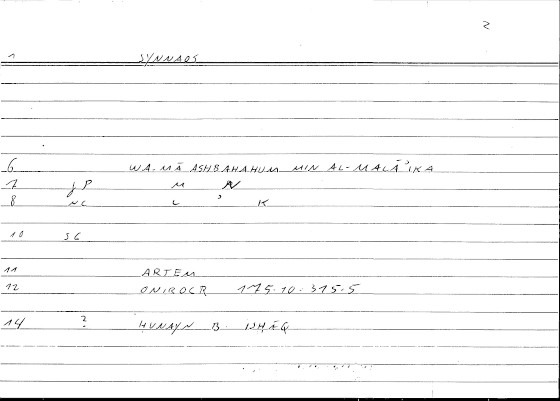 2
1 SYNNAOS
6 WA-MĀ ASHBAHAHUM MIN AL-MALĀʾIKA
7 JP M N
8 NC L ʾ K
10 SG
11 ARTEM
12 ONIROCR 175.10-315.5
14 ? HUNAYN B. ISHĀQ